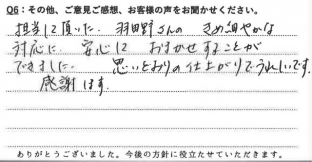 Q6：その他、ご意見ご感想、お客様の声をお聞かせください。
担当して頂いた、羽田野さんの きめ細やかな
対応に、安心して おまかせすることが
できました。 思いどおりの仕上がりでうれしいです。
感謝します。
ありがとうございました。今後の方針に役立たせていただきます。